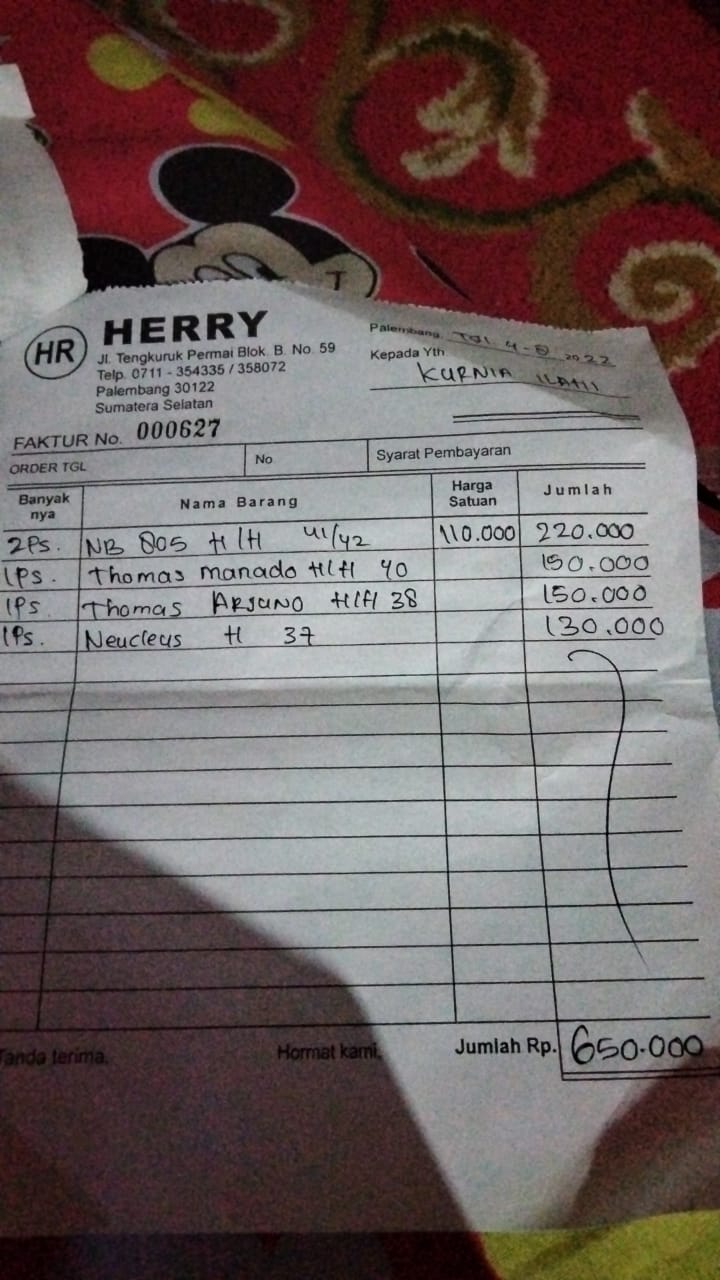 HR
HERRY
Jl. Tengkuruk Permai Blok. B. No. 59
Telp. 0711 - 354335 / 358072
Palembang 30122
Sumatera Selatan
Palembang, TGL 4-8 2022
Kepada Yth
KURNIA ILAHI
FAKTUR No. 000627
ORDER TGL No Syarat Pembayaran
Banyak nya Nama Barang Harga Satuan Jumlah
2Ps. NB 805 H/H 41/42 110.000 220.000
1Ps. Thomas manado H/H 40 150.000
1Ps. Thomas ARJUNO H/H 38 150.000
1Ps. Neucleus H 37 130.000
Tanda terima, Hormat kami, Jumlah Rp. 650.000